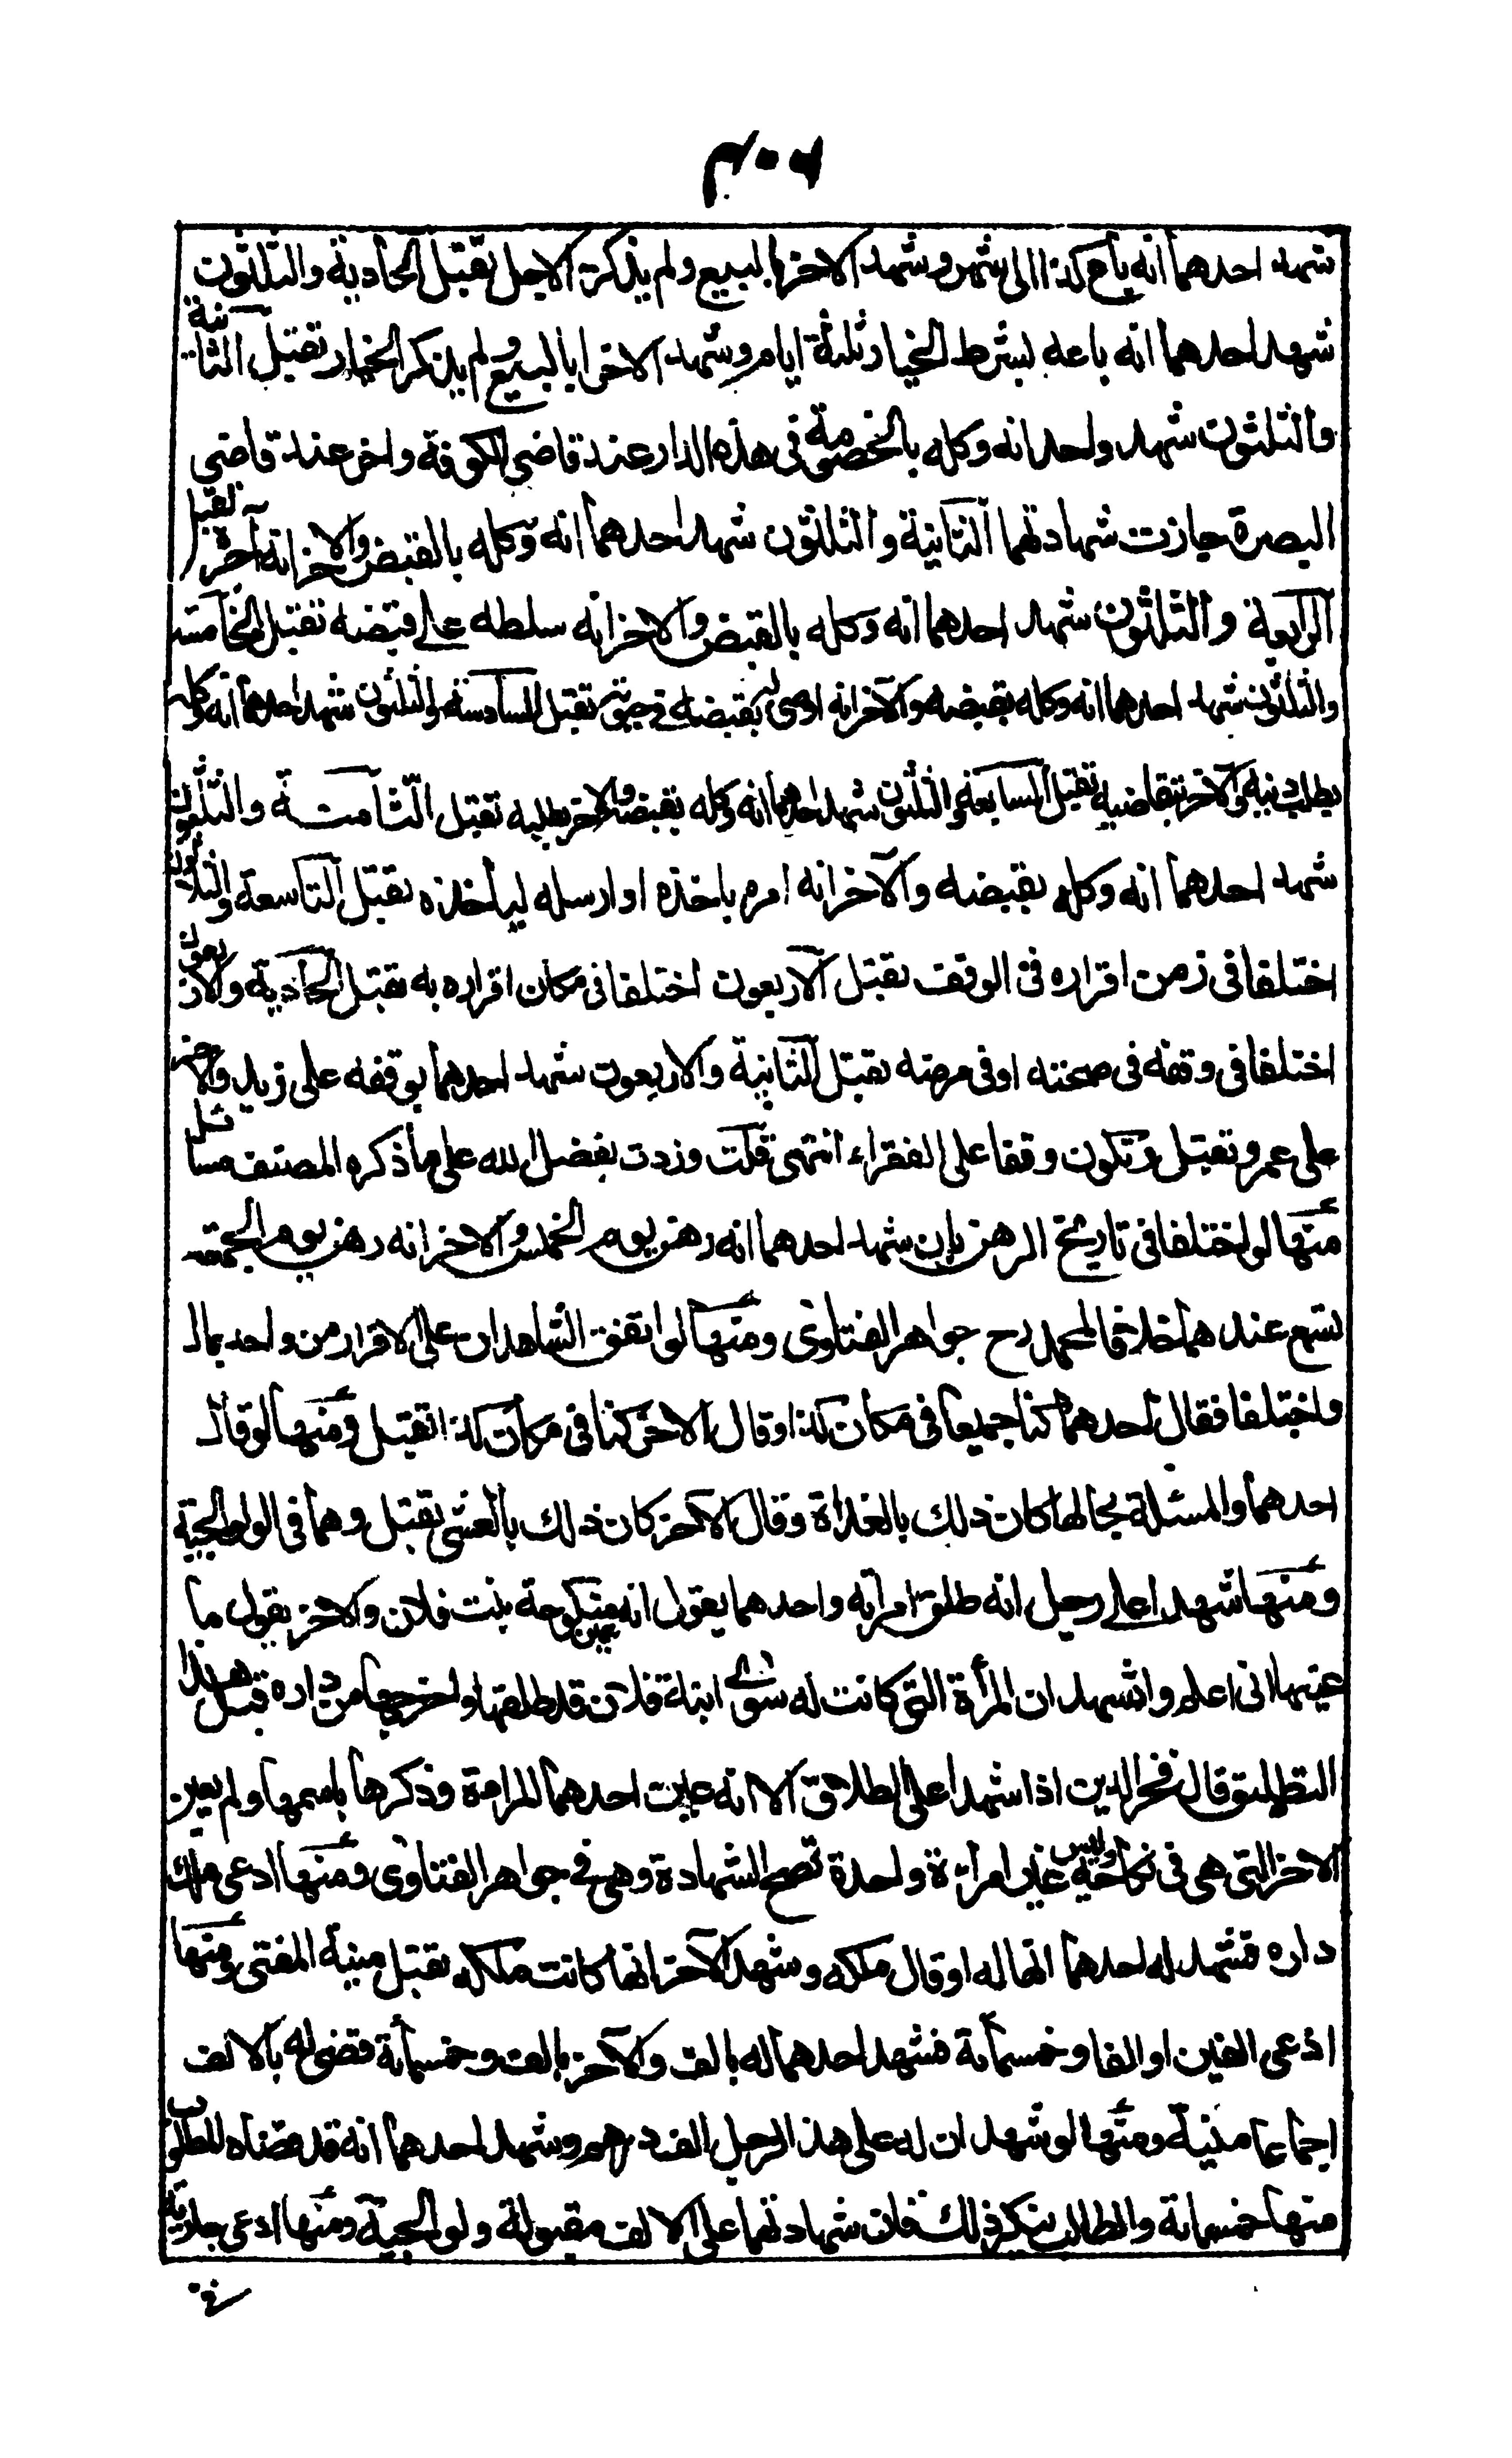 ٣٠٦
شهد احدهما انه باع كذا الى شهر وشهد الاخر بالبيع ولم يذكر الاجل تقبل الحادية والثلثون
شهد احدهما انه باعه بشرط الخيار ثلثة ايام وشهد الاخر بالبيع ولم يذكر الخيار تقبل الثانية
والثلثون شهد واحد انه وكله بالخصومة فى هذه الدار عند قاضى الكوفة واخر عند قاضى
البصرة جازت شهادتهما الثانية والثلثون شهد احدهما انه وكله بالقبض والاخر انه جره تقبل
الرابعة والثلثون شهد احدهما انه وكله بالقبض والاخر انه سلطه على قبضه تقبل الخامسة
والثلثون شهد احدهما انه وكله بقبضه والآخر انه اوصى اليه بقبضه فى حيوته تقبل السادسة والثلثون شهد احدهما انه وكله
بطلب دينه والآخر بتقاضيه تقبل السابعة والثلثون شهد احدهما انه وكله بقبضه والاخر بطلبه تقبل الثامنة والثلثون
شهد احدهما انه وكله بقبضه والآخر انه امره باخذه او ارسله ليأخذه تقبل التاسعة والثلثون
اختلفا فى زمن اقراره فى الوقف تقبل الاربعون اختلفا فى مكان اقراره به تقبل الحادية والاربعون
اختلفا فى وقفه فى صحته او فى مرضه تقبل الثانية والاربعون شهد احدهما بوقفه على زيد والاخر
على عمرو تقبل وتكون وقفا على الفقراء انتهى قلت وزدت بفضل الله على ما ذكره المصنف مسائل
منها لو اختلفا فى تاريخ الرهن بان شهد احدهما انه رهن يوم الخميس والاخر انه رهن يوم الجمعة
تسمع عندهما خلافا لمحمد رح جواهر الفتاوى ومنها لو اتفق الشاهدان على الاقرار من واحد بمال
واختلفا فقال احدهما كنا جميعا فى مكان كذا وقال الاخر كنا فى مكان كذا تقبل ومنها لو قال
احدهما والمسئلة بحالها كان ذلك بالغداة وقال الآخر كان ذلك بالعشى تقبل وهما فى الولوالجية
ومنها شهدا على رجل انه طلق امرأته واحدهما يقول انه عين منكوحة بنت فلان والاخر يقول ما
عينها انى اعلم واشهد ان المرأة التى كانت له سوى ابنة فلان قد طلقها واخرجها من داره قبل هذا
التطليق قال فخر الدين اذا شهدا على الطلاق الا انه عين احدهما المرأة وذكرها باسمها ولم يعين
الاخر التى هى فى نكاحه وليس غير امرأة واحدة تصح الشهادة وهى فى جواهر الفتاوى ومنها ادعى ملك
داره فشهد له احدهما انها له او قال ملكه وشهد الآخر انها كانت ملكه تقبل منية المفتى ومنها
ادعى الفين او الفا وخمسمائة فشهد احدهما له بالف والآخر بالف وخمسمائة قضى له بالالف
اجماعا منية ومنها لو شهد ان له على هذا الرجل الف درهم وشهد احدهما انه قد قضاه المطلوب
منها خمسمائة والطالب ينكر ذلك فان شهادتهما على الالف مقبولة ولوالجية ومنها ادعى جارية